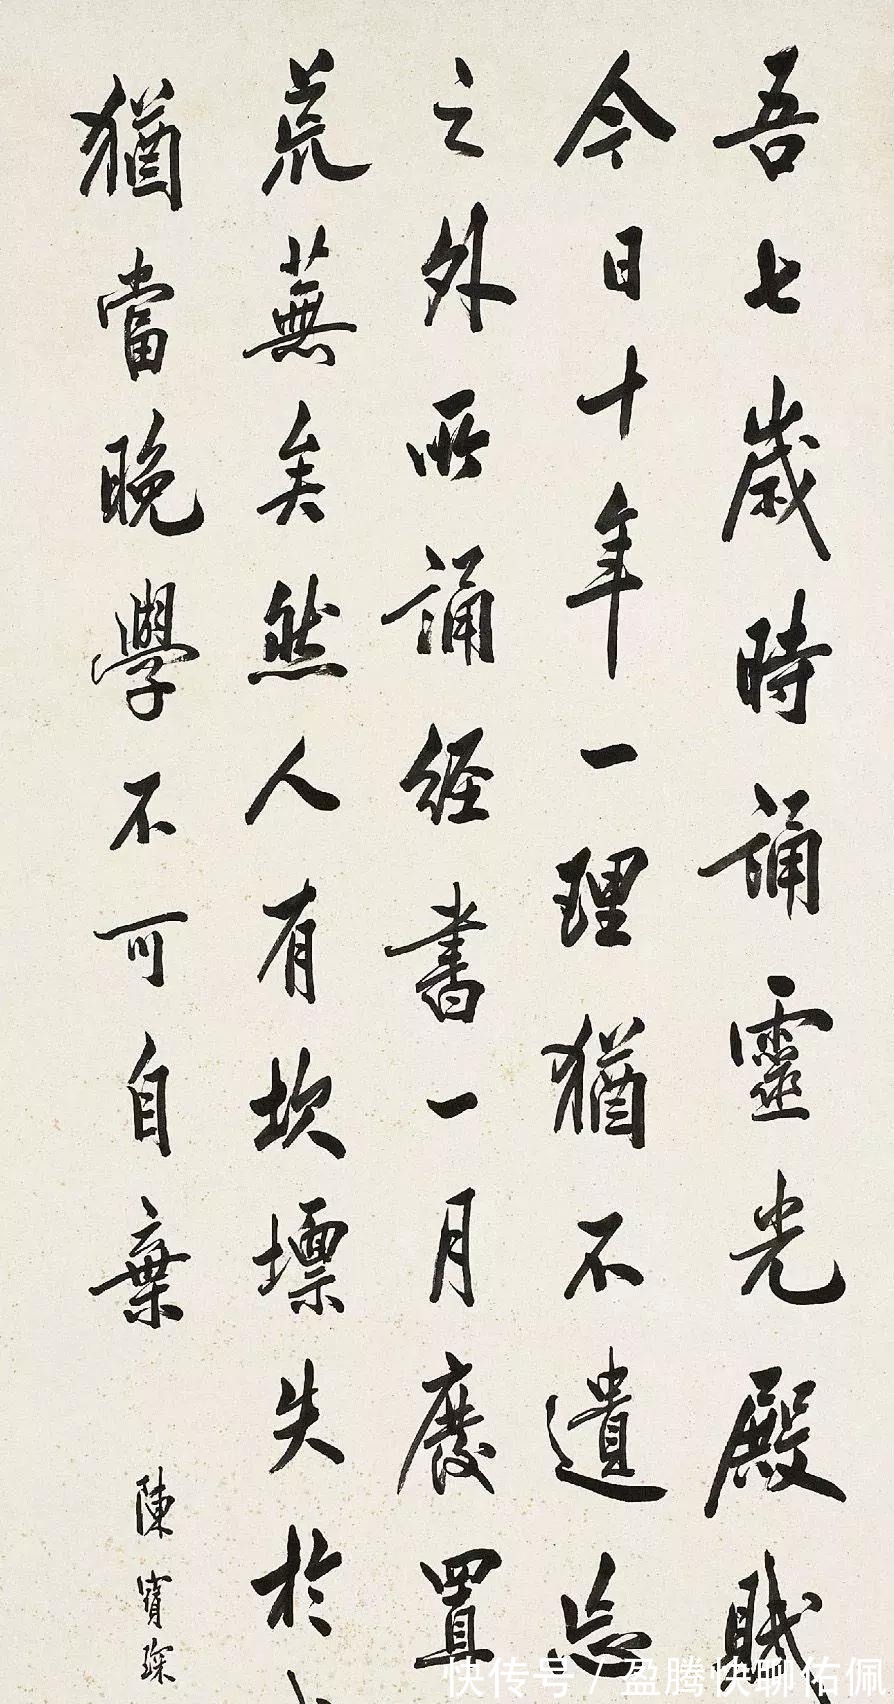 吾七歲時誦靈光殿賦
今日十年一理猶不遺忘
之外所誦經書一月廢置
荒蕪矣然人有坎壈失於
猶當晚學不可自棄
陳寶琛
快传号/盈腾快聊佑佩